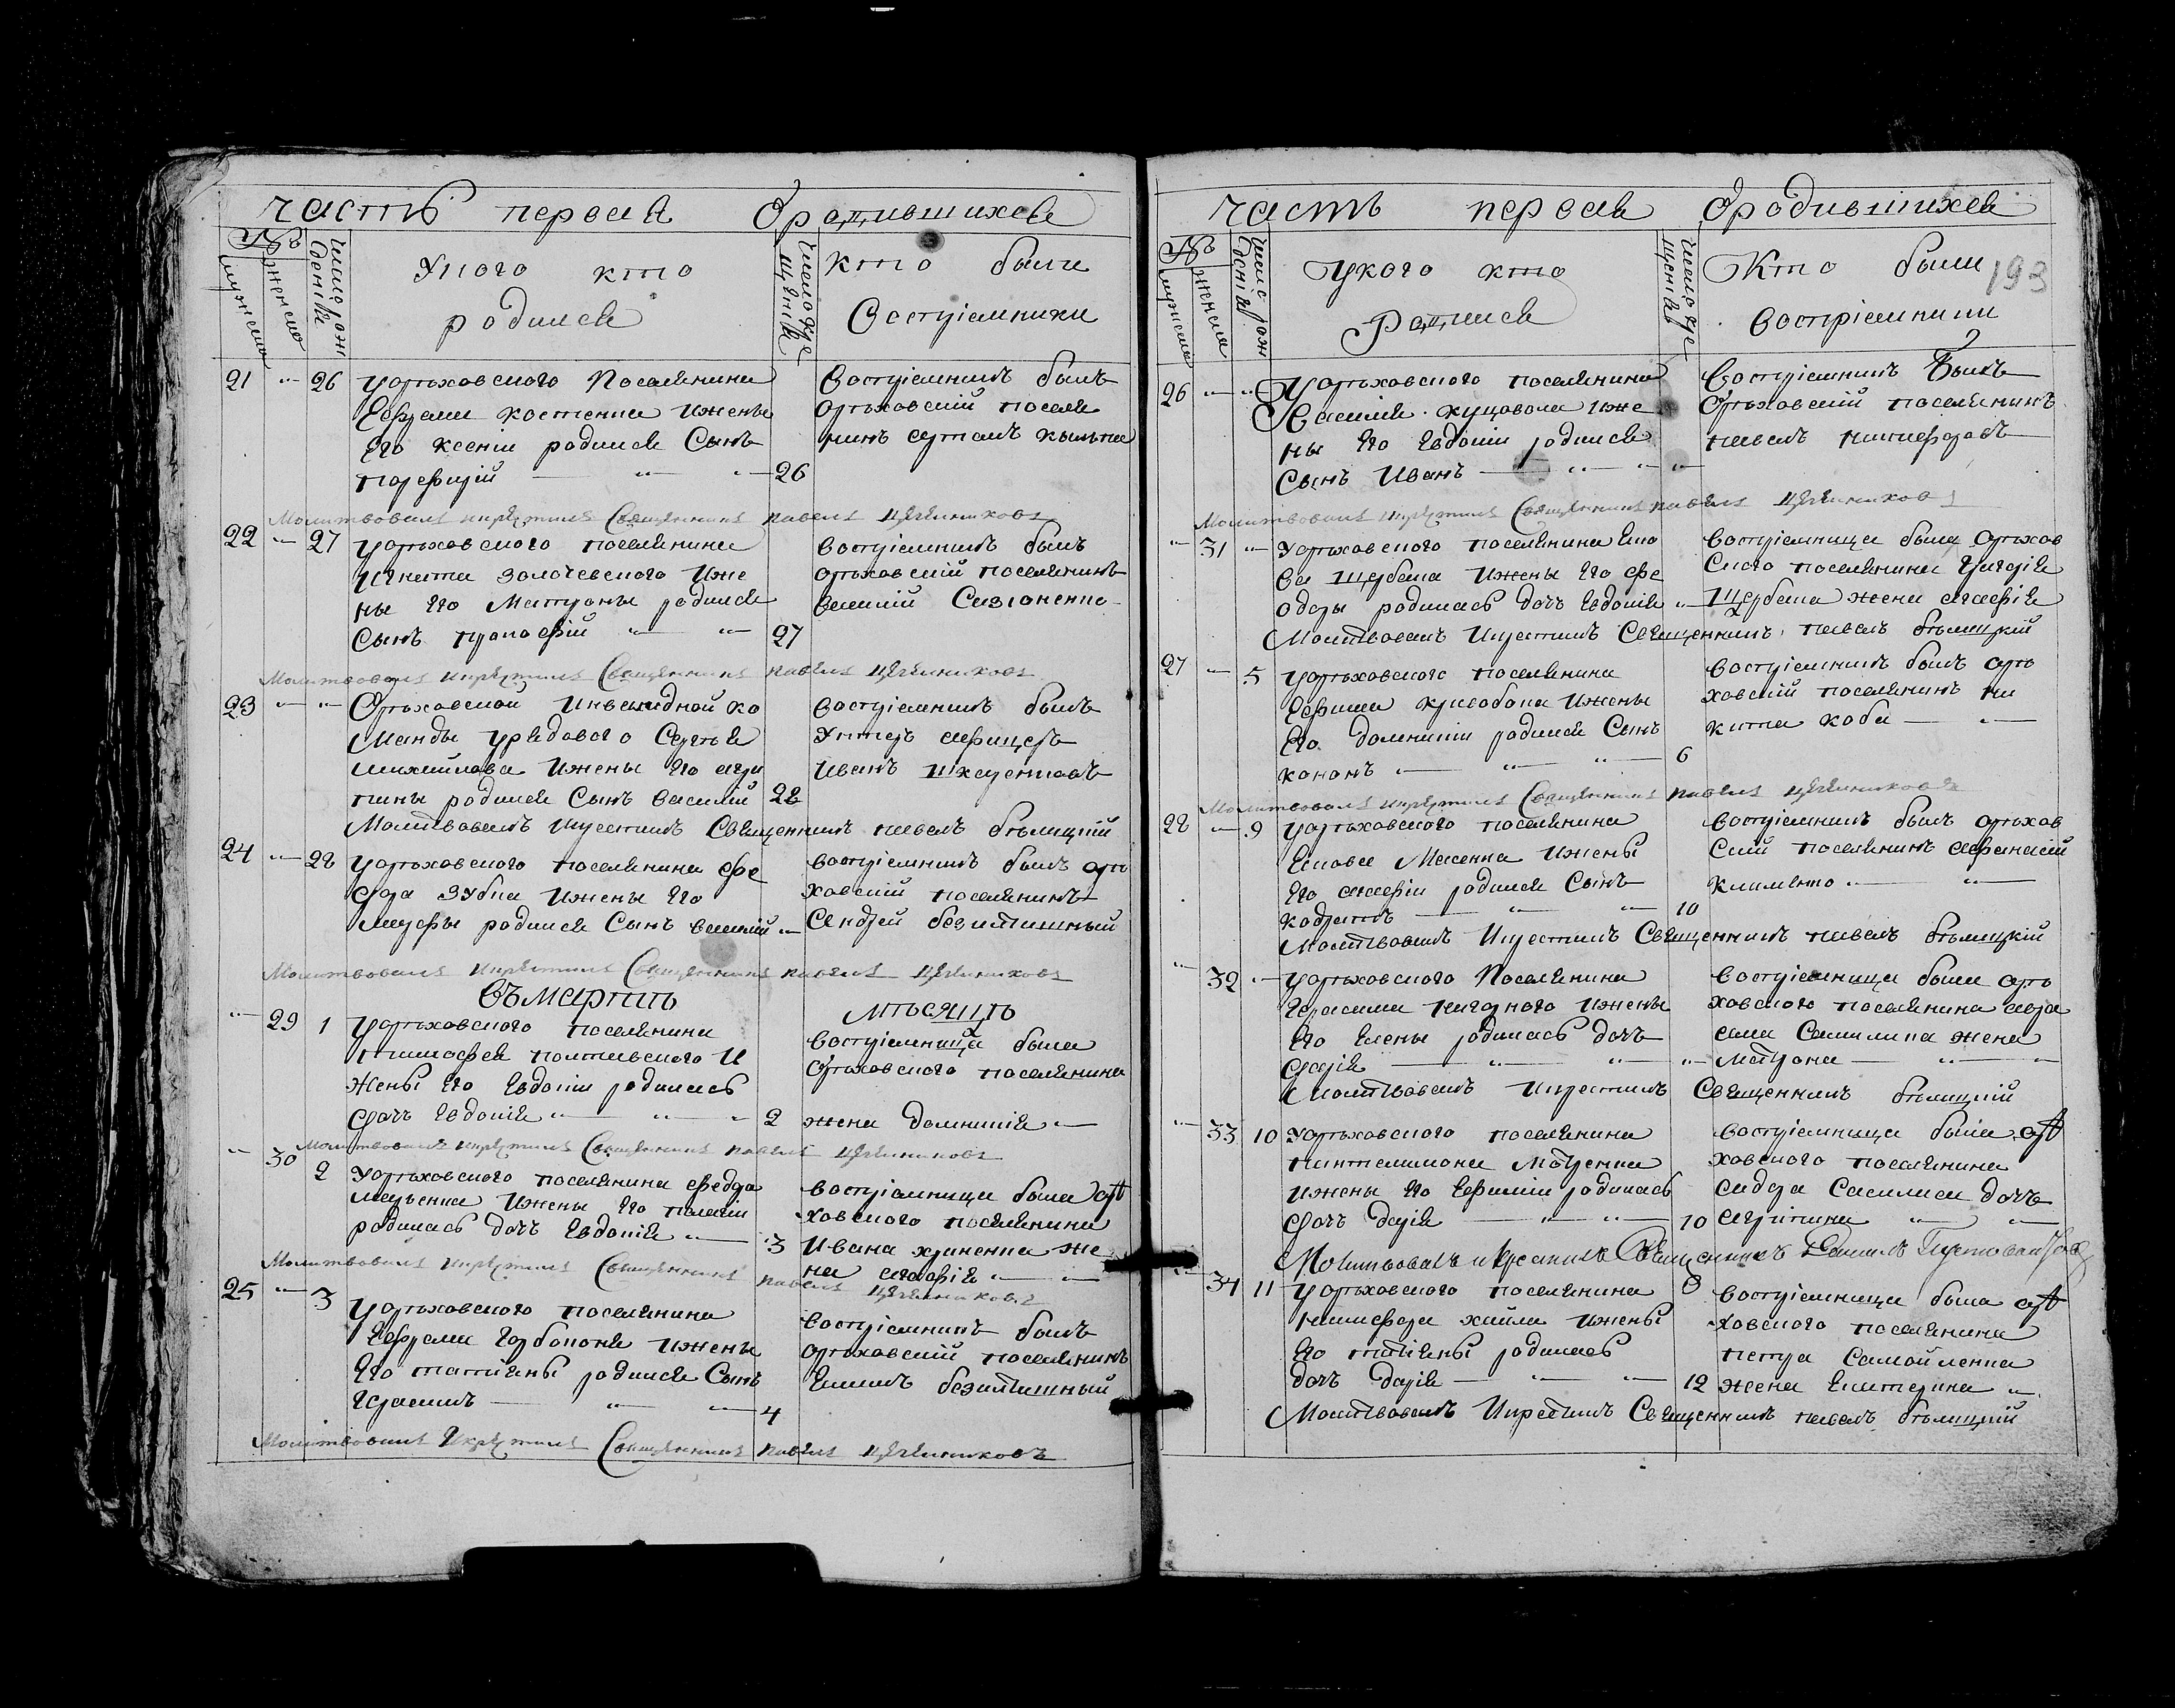 часть первая ородившихся
№
мужеска
женска
число рождения
Укого кто
родился
число креще
щенія
кто были
Воспріемники
21 " 26 Уорѣховского Поселянина
Ефрема костенка Ижены
Его Ксеніи родился Сынъ
порфирій " " 26
Воспріемникъ былъ
орѣховскій поселя
нинъ
Молитвовалъ икрестилъ Священникъ павелъ
22 " 27 Уорѣховского поселянина
Игната золочевского Иже
ны Его Матроны родился
Сынъ прокофій " " 27
Воспріемникъ былъ
орѣховскій поселянинъ
василій Сазоненко
Молитвовалъ икрестилъ Священникъ павелъ
23 " " Орѣховской Инвалидной ко
манды урядового Сергѣя
михайлова Ижены Его агри
пины родился Сынъ василій 28
Воспріемникъ былъ
Унтеръ афицеръ
Иванъ
Молитвовалъ Икрестилъ Священникъ павелъ бѣлицкій
24 " 28 Уорѣховского поселянина фе
дора зубка Ижены Его
марфы родился Сынъ василій "
воспріемникъ былъ орѣ
ховскій поселянинъ
Андрей безпятишный
Молитвовалъ икрестилъ Священникъ павелъ
въ мартѣ мѣсяцѣ
" 29 1 Уорѣховского поселянина
тимофея полтавского И
жены Его Евдокіи родилась
дочь Евдокія " " " 2
воспріемница была
орѣховского поселянина
жена домникія "
Молитвовалъ икрестилъ Священникъ павелъ
" 30 2 Уорѣховского поселянина федора
Ижены Его палагіи
родилась дочь Евдокія " 3
воспріемница была орѣ
ховского поселянина
Ивана хриненка же
на агафія " "
Молитвовалъ икрестилъ Священникъ павелъ
25 " 3 Уорѣховского поселянина
Ефрема Горбоконя Ижены
Его татіяны родился Сынъ
Герасимъ " " 4
воспріемникъ былъ
орѣховскій поселянинъ
Екимъ безпятишный
Молитвовалъ Икрестилъ Священникъ павелъ
часть первая ородившихся
№
мужеска
женска
число рож
денія
Укого кто
Родился
число кре
щенія
Кто были
воспріемники
193
26 " " Уорѣховского поселянина
Василія куцовола иже
ны Его Евдокіи родился
Сынъ Иванъ " " "
Воспріемникъ Былъ
Орѣховскій поселянинъ
павелъ никифоровъ
Молитвовалъ икрестилъ Священникъ павелъ
" 31 " Уорѣховского поселянина Яко
ва щербака Ижены Его фе
одоры родилась дочь Евдокія "
воспріемница была орѣхов
ского поселянина Григорія
Щербака жена агафія
Молитвовалъ Икрестилъ Священникъ павелъ бѣлицкій
27 " 5 Уорѣховского поселянина
Ефима кривобока Ижены
Его домникіи родился Сынъ
кононъ " " " 6
воспріемникъ былъ орѣ
ховскій поселянинъ ни
кита коба " "
Молитвовалъ икрестилъ Священникъ павелъ
28 " 9 Уорѣховского поселянина
Якова Ижены
Его агафіи родился Сынъ
кодратъ " " 10
воспріемникъ былъ орѣхов
скій поселянинъ афанасій
клименко " "
Молитвовалъ Икрестилъ Священникъ павелъ бѣлицкій
" 32 " Уорѣховского Поселянина
Герасима Ижены
Его Елены родилась дочь
дарія " " "
воспріемница была орѣ
ховского поселянина
жена
матрона " "
Молитвовалъ Икрестилъ Священникъ бѣлицкій
" 33 10 Уорѣховского поселянина
пантелимона Ижены Его Ефиміи родилась
дочь дарія " " 10
воспріемница была орѣ
ховского поселянина
сидора дочь
агрипина " "
Молитвовалъ и крестилъ Священникъ Даніилъ
" 34 11 Уорѣховского поселянина
никифора Ижены
Его татіяны родилась
дочь дарія " " 12
воспріемница была орѣ
ховского поселянина
петра Самойленка
жена Екатерина "
Молитвовалъ Икрестилъ Священникъ павелъ бѣлицкій